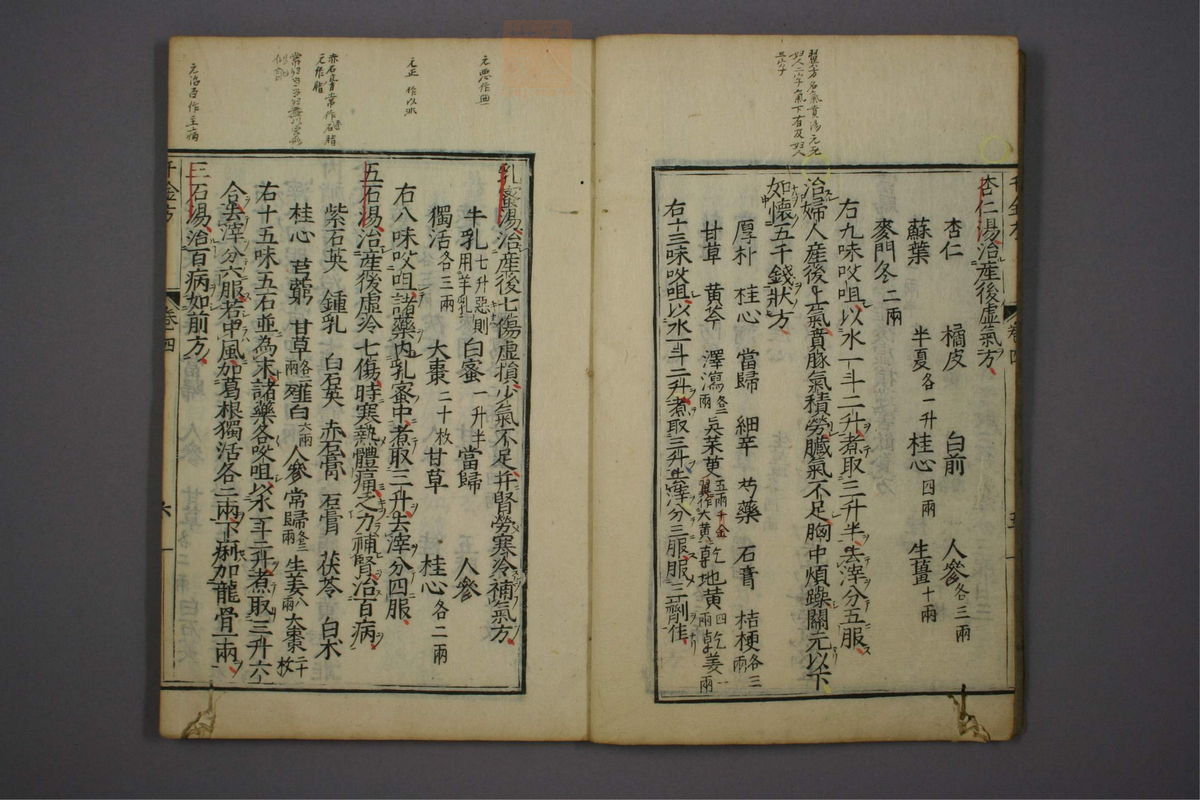 翼方名氣賁湯元无
婦人二字氣下有及婦人
三字
杏仁湯治産後虛氣方
杏仁 橘皮 白前 人參各三兩
蘇葉 半夏各一升桂心四兩 生薑十兩
麥門冬二兩
右九味㕮咀以水一斗二升煮取三升半去滓分五服
治婦人産後上氣賁豚氣積勞臟氣不足胸中煩躁關元以下
如懷五千錢狀方
厚朴 桂心 當歸 細辛 芍藥 石膏 桔梗各三兩
甘草 黃芩 澤瀉各二兩吳茱萸五兩千金翼作大黃乾地黃四兩乾姜一兩
右十三味㕮咀以水一斗二升煮取三升去滓分三服服三劑佳
卷四
五
元惡作無
元正作以水
元作脂
元治百作主病
乳蜜湯治産後七傷虛損少氣不足并腎勞寒冷補氣方
牛乳七升惡則用羊乳白蜜一升半當歸 人參
獨活各三兩 大棗二十枚甘草 桂心各二兩
右八味㕮咀諸藥内乳蜜中煮取三升去滓分四服
五石湯治産後虛冷七傷時寒熱體痛乏力補腎治百病
紫石英 鍾乳 白石英 赤石膏 石膏 茯苓 白朮
桂心 芎藭 甘草各二兩薤白六兩人參常歸各三兩生姜八兩大棗二十枚
右十五味五石並為末諸藥各㕮咀以水一斗二升煮取三升六
合去滓分六服若中風加葛根獨活各二兩下痢加龍骨一兩
三石湯治百病如前方
千金方
卷四
六